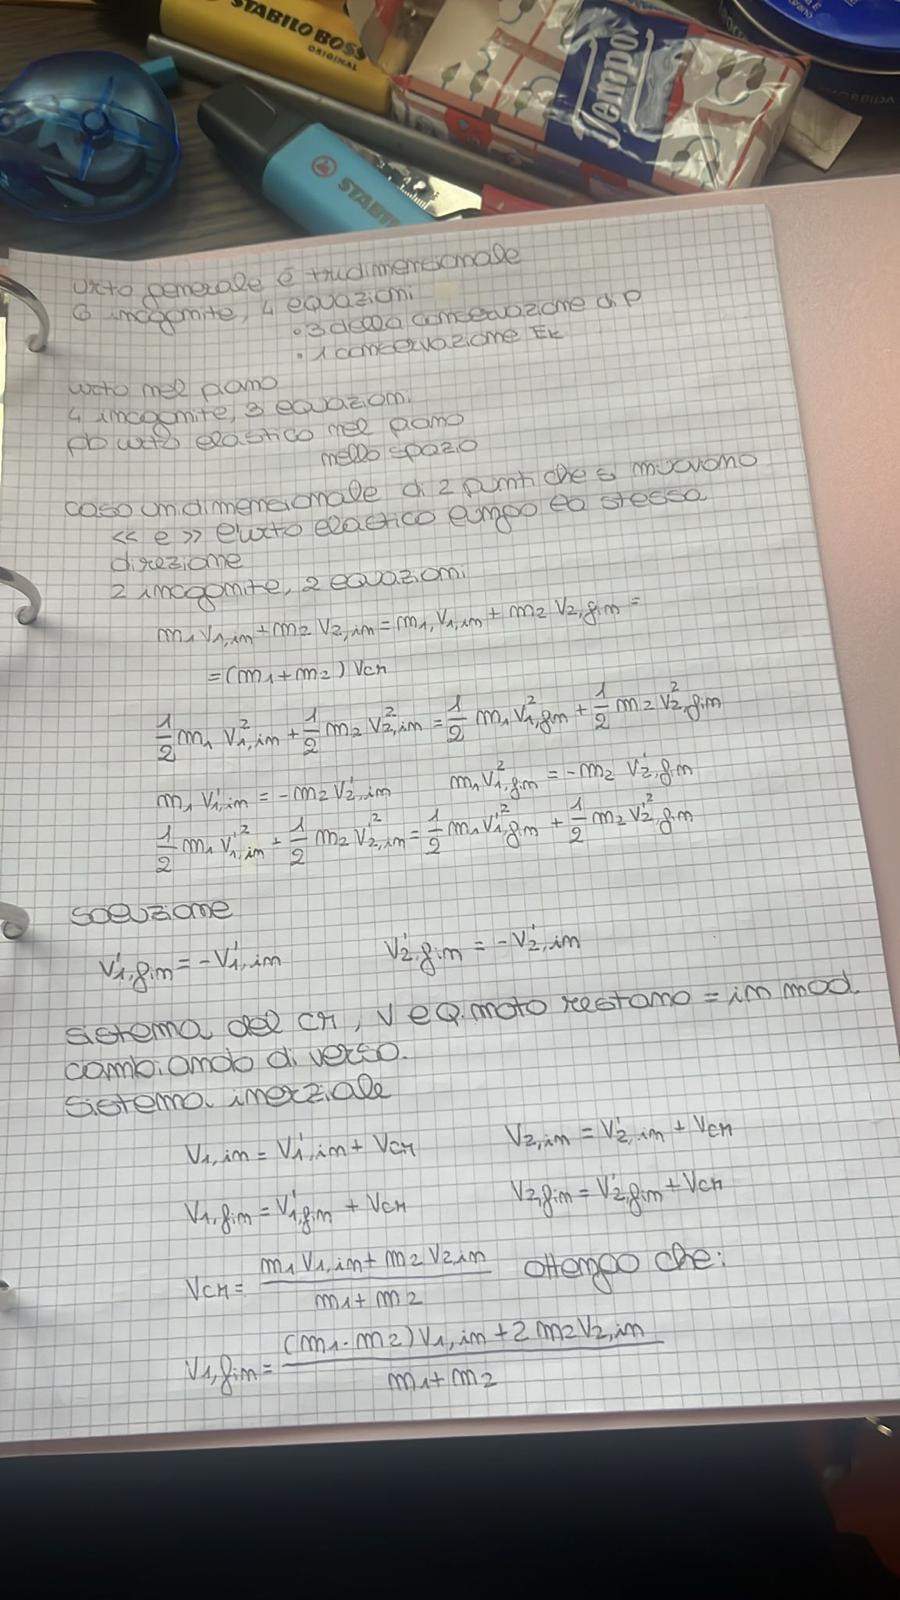 STABILO BOSS
ORIGINAL
Tempo
STABI
urto generale é tridimensionale
6 incognite, 4 equazioni
• 3 della conservazione di P
• 1 conservazione Ek
urto nel piano
4 incognite, 3 equazioni
pb urto elastico nel piano
nello spazio
caso undimensionale di 2 punti che s muovono
<< e >> e urto elastico lungo la stessa
direzione
2 incognite, 2 equazioni
m1 v1,in + m2 v2,in = m1, v1,in + m2 v2,fin =
= (m1 + m2) vcn
1/2 m1 v²1,in + 1/2 m2 v²2,in = 1/2 m1 v²1,fin + 1/2 m2 v²2,fin
m1 v'1,in = -m2 v'2,in   m1 v²1,fin = -m2 v'2,fin
1/2 m1 v'²1,in + 1/2 m2 v'²2,in = 1/2 m1 v'²1,fin + 1/2 m2 v'²2,fin
soluzione
v'1,fin = -v'1,in   v'2,fin = -v'2,in
sistema del cn, v e q.moto restano = in mod.
cambiando di verso.
sistema inerziale
v1,in = v'1,in + vcn   v2,in = v'2,in + vcn
v1,fin = v'1,fin + vcn   v2,fin = v'2,fin + vcn
vcn = m1 v1,in + m2 v2,in / m1 + m2   ottengo che:
v1,fin = (m1 - m2) v1,in + 2 m2 v2,in / m1 + m2